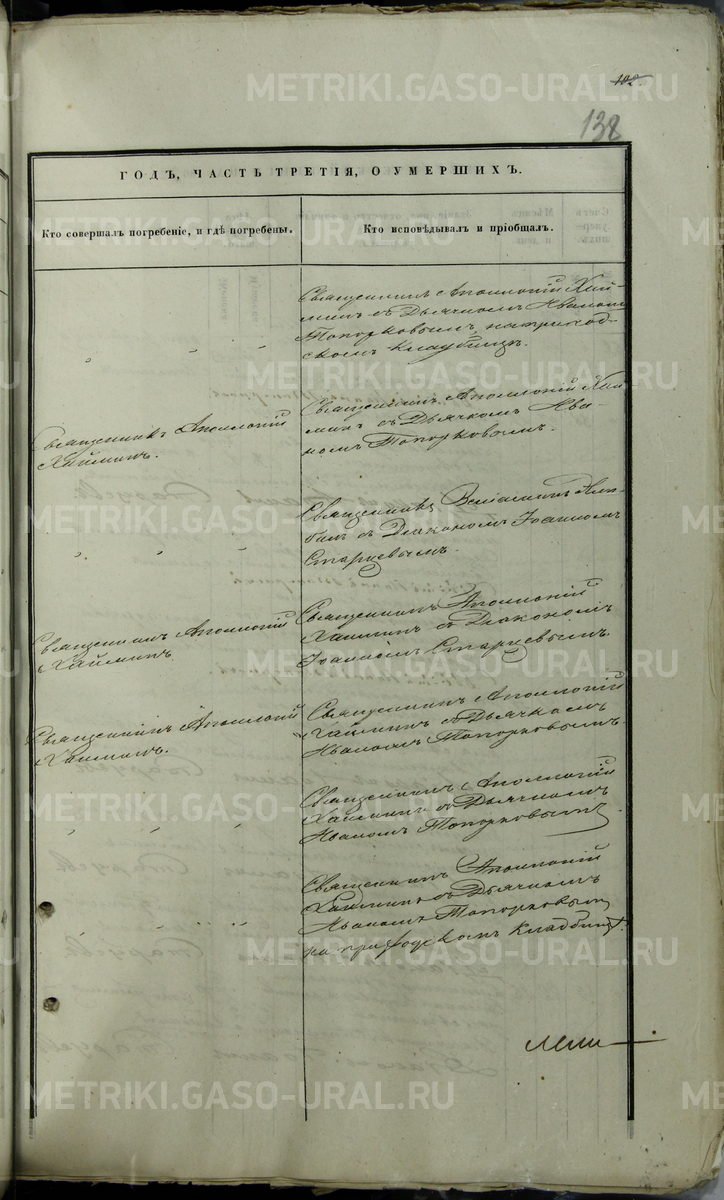 102.
138
ГОДЪ, ЧАСТЬ ТРЕТІЯ, О УМЕРШИХЪ.
Кто совершалъ погребеніе, и гдѣ погребены.
Кто исповѣдывалъ и пріобщалъ.
Священникъ Аполлоній Хай-
минъ съ Дьячкомъ Иваномъ
Топорковымъ на приход-
скомъ кладбищѣ.
" " "
Священникъ Аполлоній
Хайминъ.
Священникъ Аполлоній Хай-
минъ съ Дьячкомъ Ива-
номъ Топорковымъ.
" " "
Священникъ Веніаминъ
съ Діакономъ Іоанномъ
Старцевымъ.
Священникъ Аполлоній
Хайминъ.
Священникъ Аполлоній
Хайминъ съ Діакономъ
Іоанномъ Старцевымъ.
Священникъ Аполлоній
Хайминъ.
Священникъ Аполлоній
Хайминъ съ Дьячкомъ
Иваномъ Топорковымъ.
" " "
Священникъ Аполлоній
Хайминъ съ Дьячкомъ
Иваномъ Топорковымъ.
" " "
Священникъ Аполлоній
Хайминъ съ Дьячкомъ
Иваномъ Топорковым
на приходскомъ кладбищѣ.
METRIKI.GASO-URAL.RU